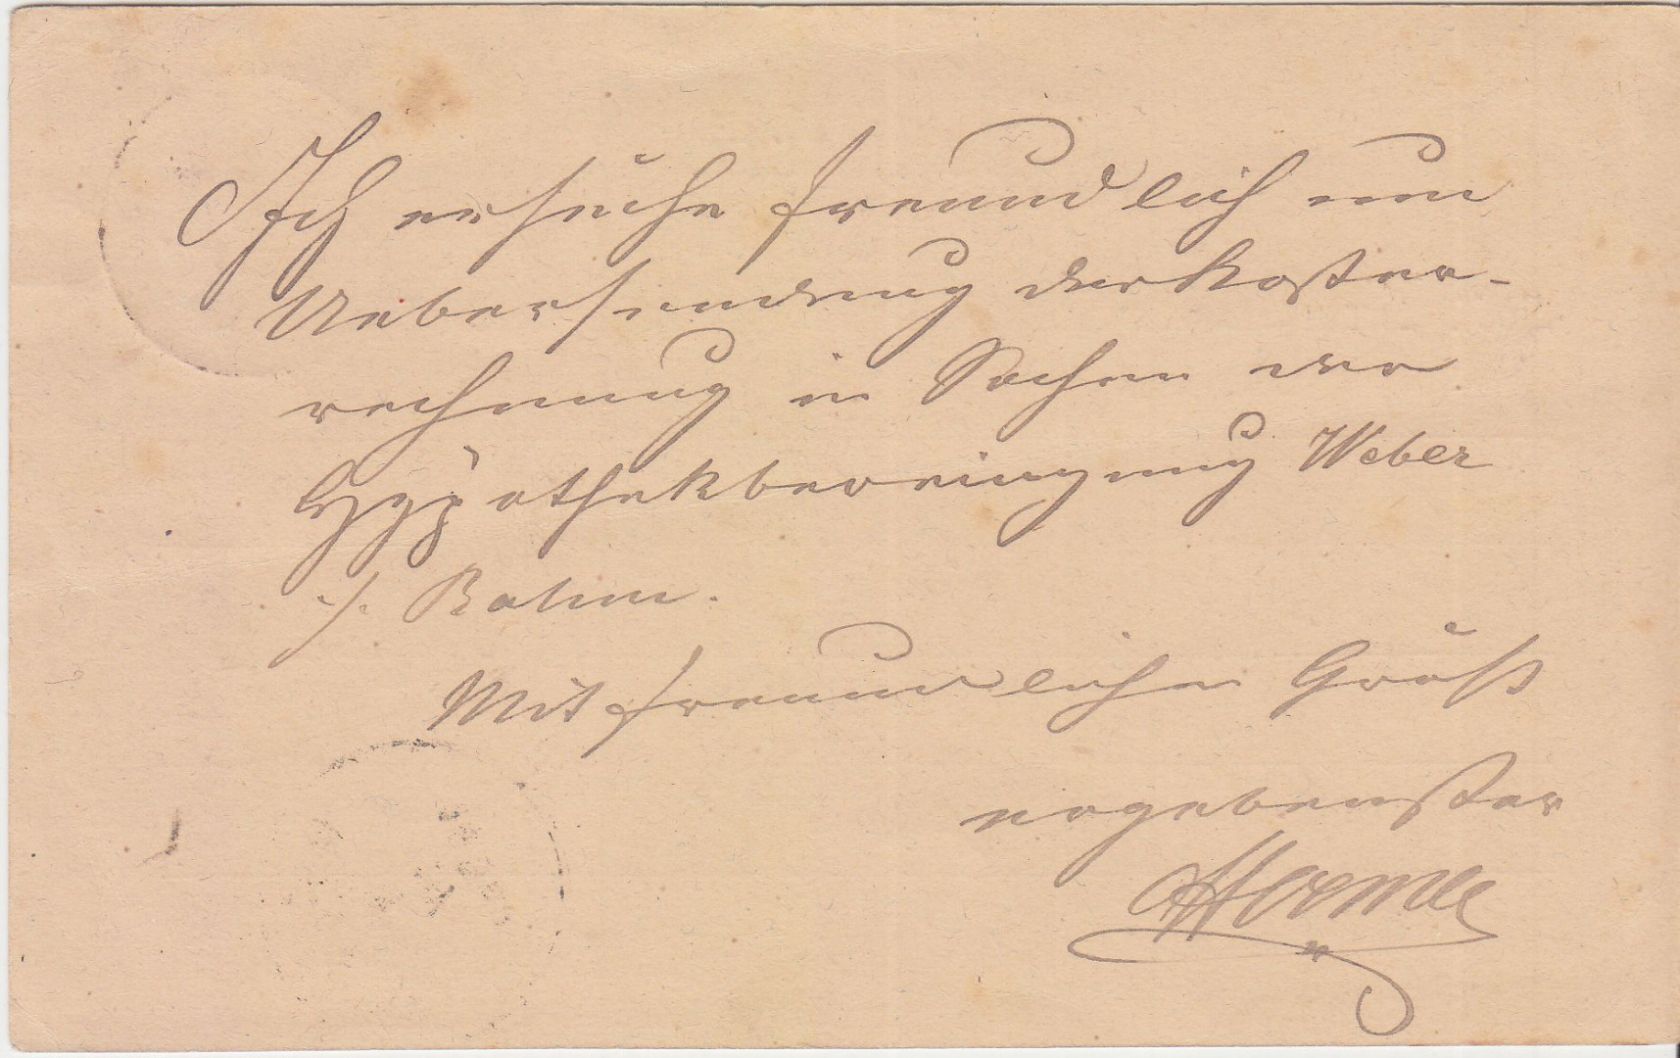 Ich ersuche freundlich um
Uebersendung der Kosten-
rechnung in Sachen der
Hypothekbereinigung Weber
./. Bohm.
Mit freundlichem Gruß
ergebenster